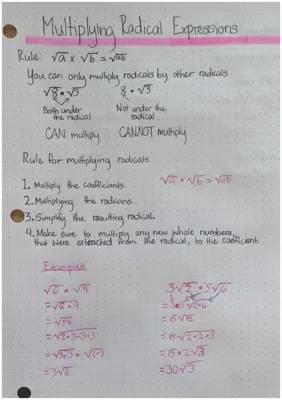 Multiplying Radical Expressions
Rule: √a x √b = √ab
You can only multiply radicals by other radicals
√8 • √3 8 • √3
Both under the radical Not under the radical
CAN multiply CANNOT multiply
Rule for multiplying radicals
√a • √b = √ab
1. Multiply the coefficients.
2. Multiplying the radicans.
3. Simplify the resulting radical.
4. Make sure to multiply any new whole numbers,
that were extracted from the radical, to the coefficient
Examples
√6 • √9 3√2 • 5√6
= √6•9 = 3•5√2•6
= √54
= √2•3•3•3 = 15√2•2•3
= √3•3 • √2•3 = 15•2√3
= 3√6 = 30√3